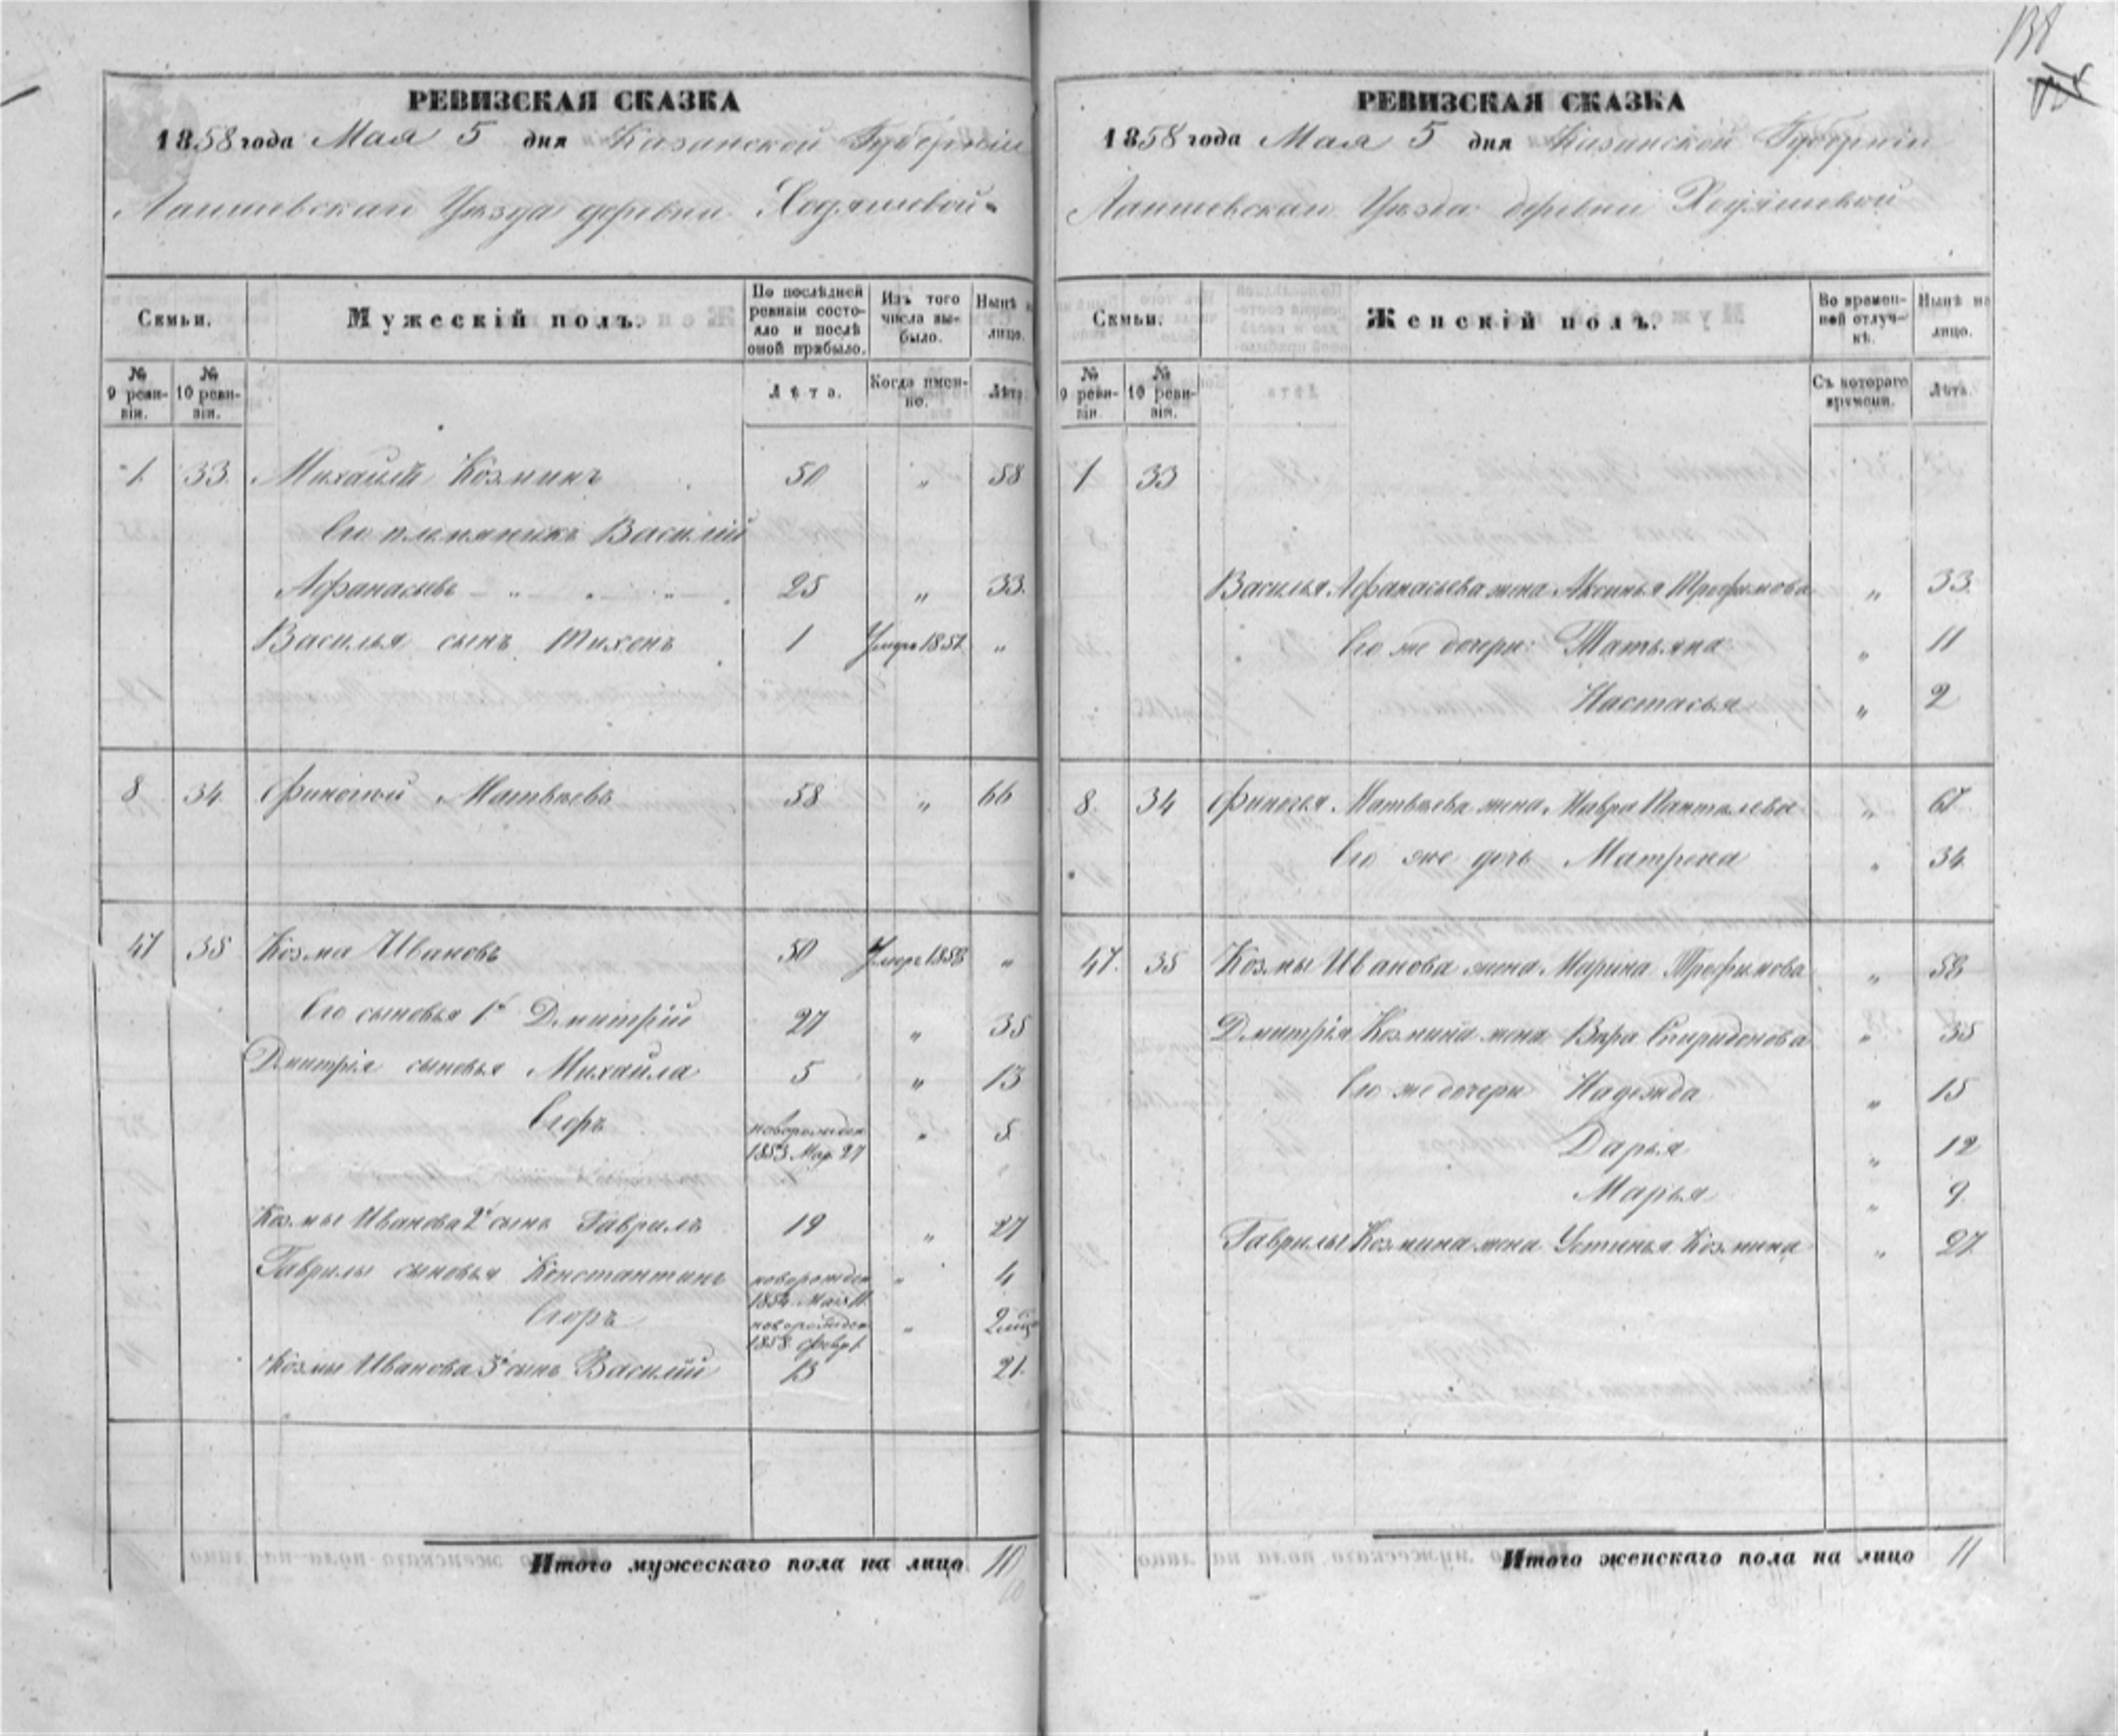 РЕВИЗСКАЯ СКАЗКА
1858 года Мая 5 дня Казанской Губерніи
Лаишевскаи Уѣзда деревни Ходяшевой
Семьи.
Мужескій полъ.
По послѣдней ревизіи состояло и послѣ оной прибыло.
Изъ того числа выбыло.
Нынѣ на лицо.
№ 9 ревизіи.
№ 10 ревизіи.
Лѣта.
Когда именно.
Лѣта
1 33 Михаилъ Козминъ 50 „ 58
Его племянникъ Василій
Афанасьевъ 25 „ 33
Василья сынъ Тихонъ 1 Умеръ 1851 „
8 34 Финогей Матвѣевъ 58 „ 66
47 35 Козма Ивановъ 50 Умеръ 1858 „
Его сыновья 1й Дмитрій 27 „ 35
Дмитрія сыновья Михайла 5 „ 13
Егоръ новорожден 1853 Мар. 27 „ 5
Козмы Иванова 2й сынъ Гаврилъ 19 „ 27
Гаврилы сыновья Константинъ новорожден 1854 Мая 11 „ 4
Егоръ новорожден 1858 Февр 1 „ 2
Козмы Иванова 3й сынъ Василій 13 21
Итого мужескаго пола на лицо 10
10
131
РЕВИЗСКАЯ СКАЗКА
1858 года Мая 5 дня Казанской Губерніи
Лаишевскаи Уѣзда деревни Ходяшевой
Семьи.
Женскій полъ.
Во временной отлучкѣ.
Нынѣ на лицо.
№ 9 ревизіи.
№ 10 ревизіи.
Съ котораго времени.
Лѣта.
1 33
Василья Афанасьева жена Аксинья Трофимова „ 33
Его же дочери: Татьяна „ 11
Настасья „ 2
8 34 Финогея Матвѣева жена Мавра Пантелева „ 67
Его же дочь Матрена „ 34
47 35 Козмы Иванова жена Марина Трофимова „ 58
Дмитрія Козмина жена Вѣра Спиридонова „ 35
Его же дочери Надежда „ 15
Дарья „ 12
Марья „ 9
Гаврилы Козмина жена Устинья Козмина „ 27
Итого женскаго пола на лицо 11